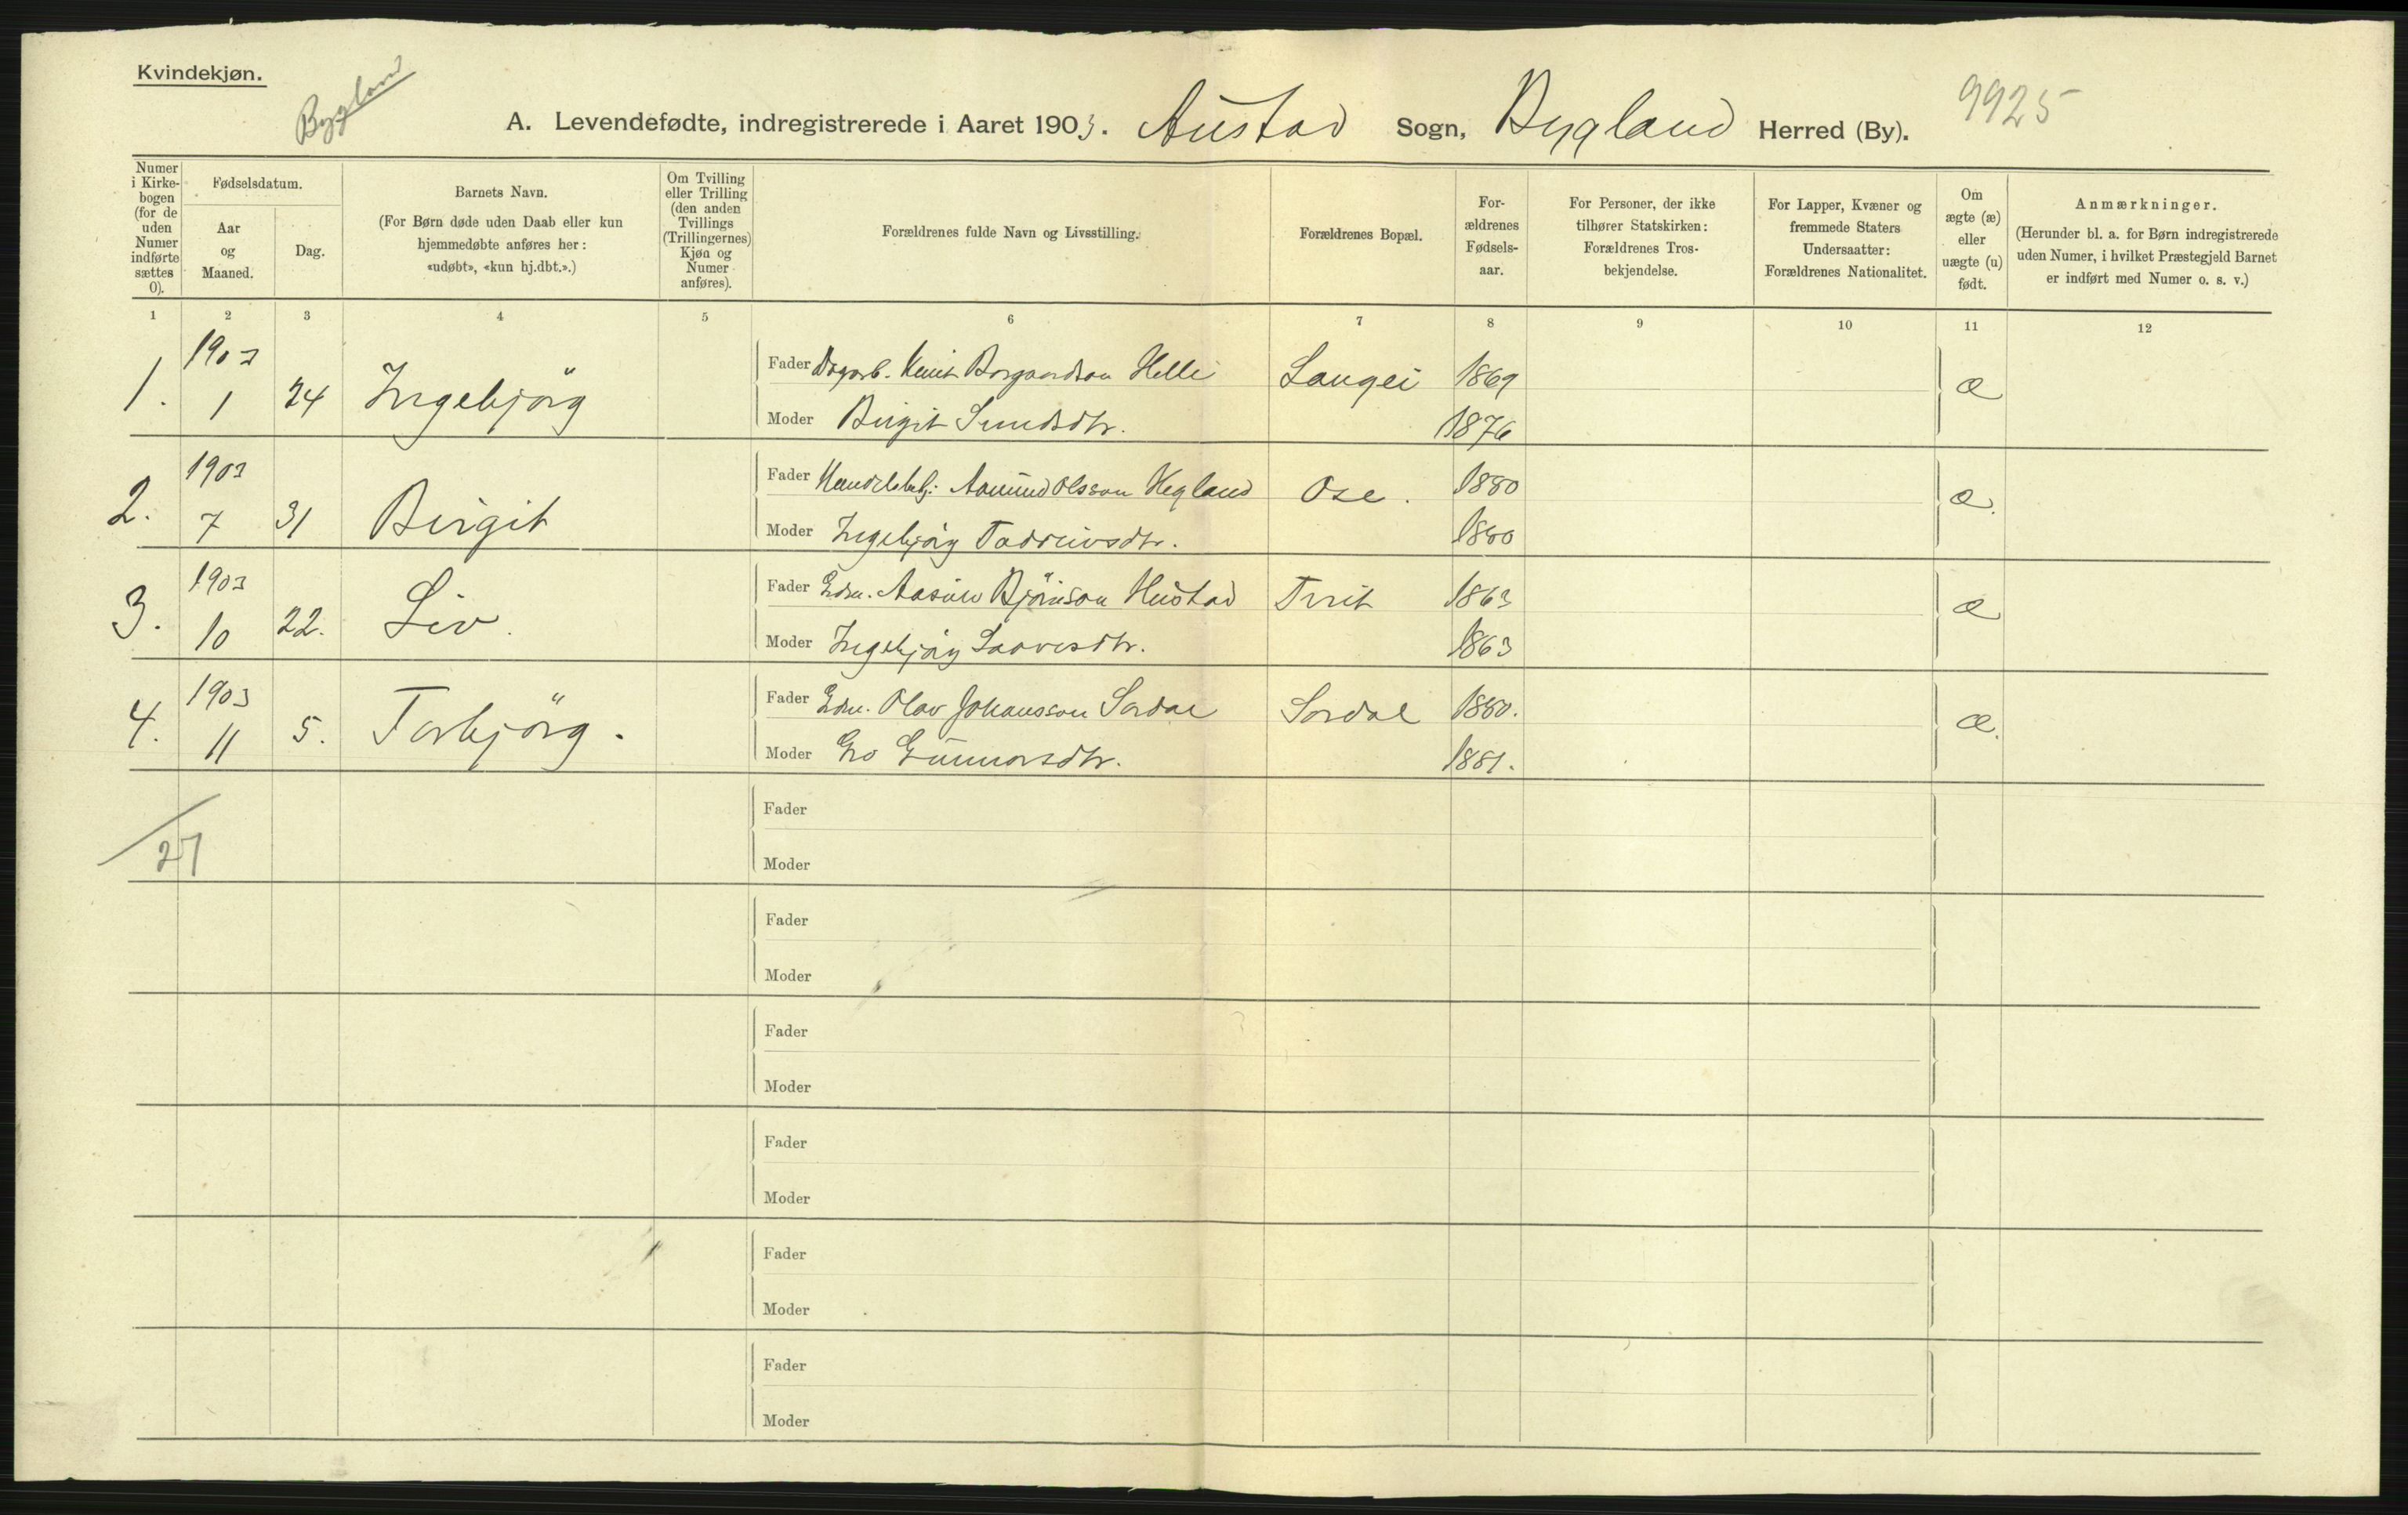 Kvindekjøn.
Bygland
9925
A. Levendefødte, indregistrerede i Aaret 1903. Austad Sogn, Bygland Herred (By).
Numer i Kirkebogen (for de uden Numer indførte sættes 0).
Fødselsdatum.
Aar og Maaned.
Dag.
Barnets Navn.
(For Børn døde uden Daab eller kun hjemmedøbte anføres her: «udøbt», «kun hj.dbt.».)
Om Tvilling eller Trilling (den anden Tvillings (Trillingernes) Kjøn og Numer anføres).
Forældrenes fulde Navn og Livsstilling.
Forældrenes Bopæl.
For-ældrenes Fødsels-aar.
For Personer, der ikke tilhører Statskirken: Forældrenes Tros-bekjendelse.
For Lapper, Kvæner og fremmede Staters Undersaatter: Forældrenes Nationalitet.
Om ægte (æ) eller uægte (u) født.
Anmærkninger.
(Herunder bl. a. for Børn indregistrerede uden Numer, i hvilket Præstegjeld Barnet er indført med Numer o. s. v.)
1 2 3 4 5 6 7 8 9 10 11 12
1. 1903 1 24 Ingebjörg Fader Dagarb. Knut Borgardson Helle Langei 1869 æ
Moder Birgit Sundsdtr. 1876
2. 1903 7 31 Birgit Fader Aamund Olsson Hegland Ose. 1880 æ.
Moder Ingebjörg Tadreivsdtr. 1880
3. 1903 10 22. Liv. Fader Gdm. Björnson 1863 æ
Moder Ingebjörg Saavesdtr. 1863
4. 1903 11 5. Torbjörg. Fader Gdm. Olav Johansson Sordal Sordal 1880. æ.
Moder Gro Gunnarsdtr. 1881.
27
Fader
Moder
Fader
Moder
Fader
Moder
Fader
Moder
Fader
Moder
Fader
Moder